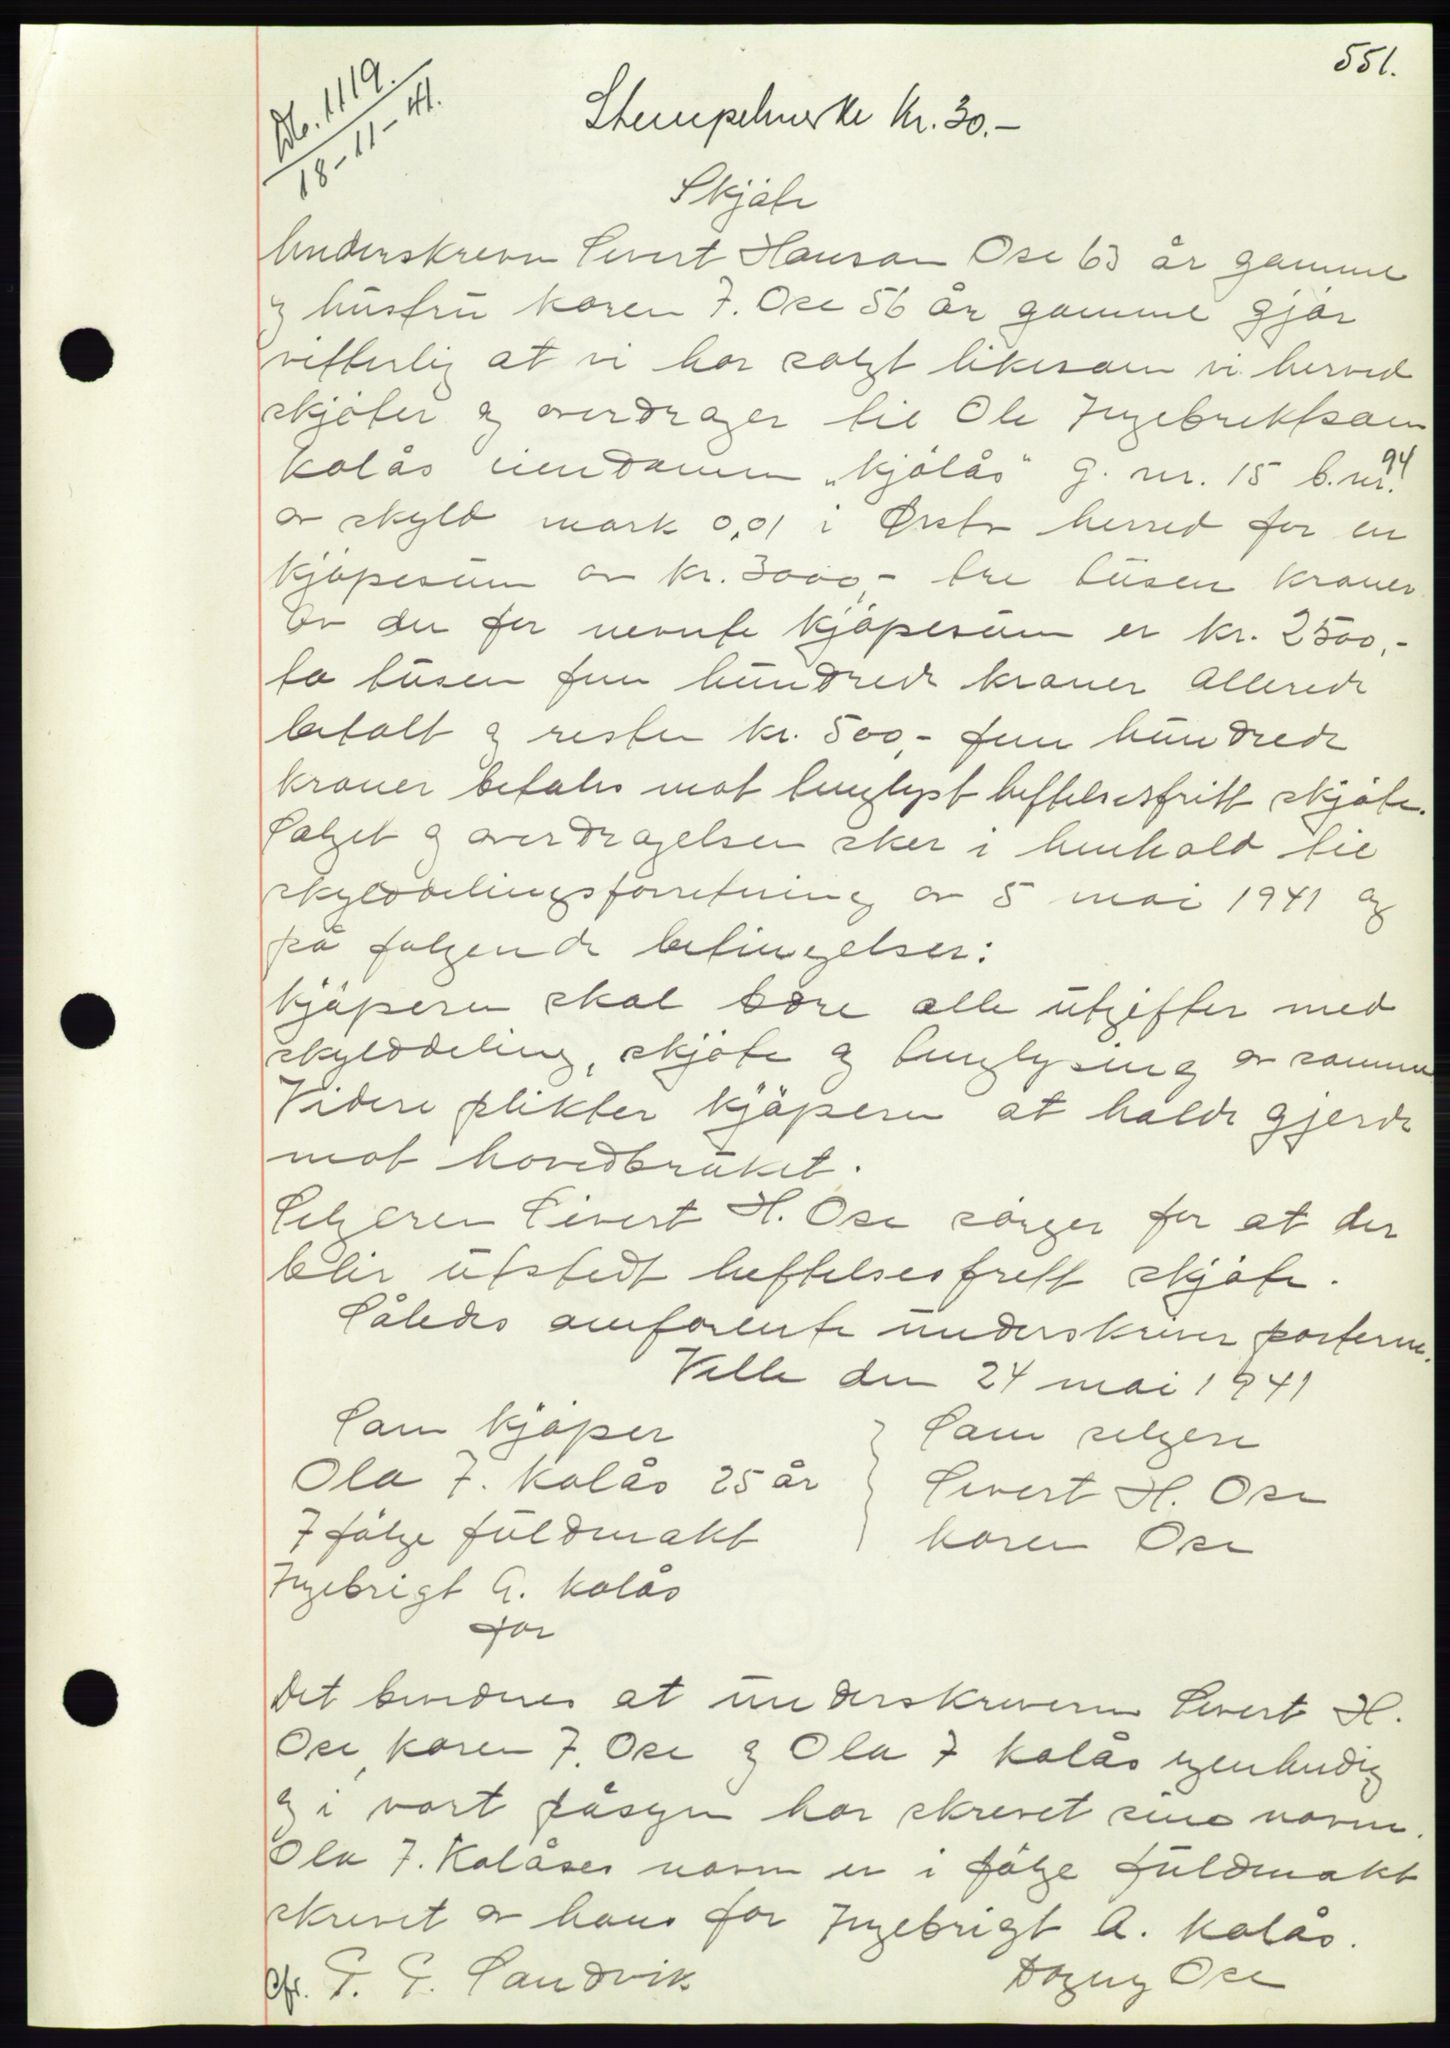 551.
Db. 1119.
18-11-41.
Stempelmerke Kr. 30.-
Skjøte
Underskrevne Sivert Hansen Ose 63 år gamme
og hustru Karen I. Ose 56 år gammel gjør
vitterlig at vi har solgt likesom vi herved
skjøter og overdrager til Ole Ingebriktsen
Kolås eiendommen „Kjølås" g. nr. 15 b. nr. 94
av skyld mark 0,01 i Ørsta herred for en
kjøpesum av kr. 3000,- tre tusen kroner
Av den før nevnte kjøpesum er kr. 2500,-
to tusen fem hundrede kroner allerede
betalt og resten kr. 500,- fem hundrede
kroner betales mot tinglyst heftelsesfritt skjøte.
Salget og overdragelsen sker i henhold til
skylddelingsforretning av 5 mai 1941 og
på følgende betingelser:
Kjøperen skal bære alle utgifter med
skylddeling, skjøte og tinglysing av samme
Videre plikter kjøperen at holde gjerde
mot hovedbruket.
Selgeren Sivert H. Ose sørger for at der
blir utstedt heftelsesfrett skjøte.
Således omforente underskriver parterne.
Velle den 24 mai 1941
Som kjøper
Ola I. Kolås 25 år
I følge fuldmakt
Ingebrigt A. Kolås
far
Som selgere
Sivert H. Ose
Karen Ose
Det bevidnes at underskriverne Sivert H.
Ose, Karen I. Ose og Ola I Kolås egenhendig
og i vort påsyn har skrevet sine navne.
Ola I. Kolåses navn er i følge fuldmakt
skrevet av hans far Ingebrigt A. Kolås.
P. G. Sandvik
Dagny Ose